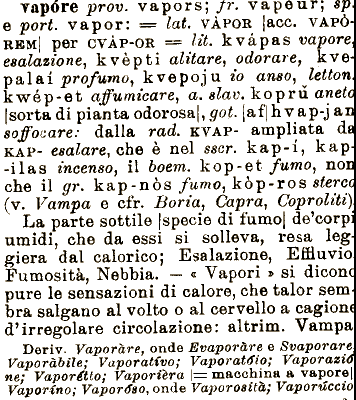 vapóre prov. vapors; fr. vapeur; sp.
e port. vapor: = lat. VÀPOR |acc. VAPÒ-
REM| per CVÀP-OR = lit. kvápas vapore,
esalazione, kvèpti alitare, odorare, kve-
palaí profumo, kvepoju io anso, letton.
kwép-et affumicare, a. slav. koprŭ aneto
|sorta di pianta odorosa|, got. |af|hvap-jan
soffocare: dalla rad. KVAP- ampliata da
KAP- esalare, che è nel sscr. kap-í, kap-
-ilas incenso, il boem. kop-et fumo, non
che il gr. kap-nòs fumo, kòp-ros sterco
(v. Vampa e cfr. Boria, Capra, Coproliti).
La parte sottile |specie di fumo| de'corpi
umidi, che da essi si solleva, resa leg-
giera dal calorico; Esalazione, Effluvio
Fumosità, Nebbia. — « Vapori » si dicono
pure le sensazioni di calore, che talor sem-
bra salgano al volto o al cervello a cagione
d'irregolare circolazione: altrim. Vampa
Deriv. Vaporàre, onde Evaporàre e Svaporare,
Vaporàbile; Vaporatívo; Vaporatóio; Vaporazió
ne; Vaporétto; Vaporièra |= macchina a vapore|
Vaporíno; Vaporóso, onde Vaporosità; Vaporúccio